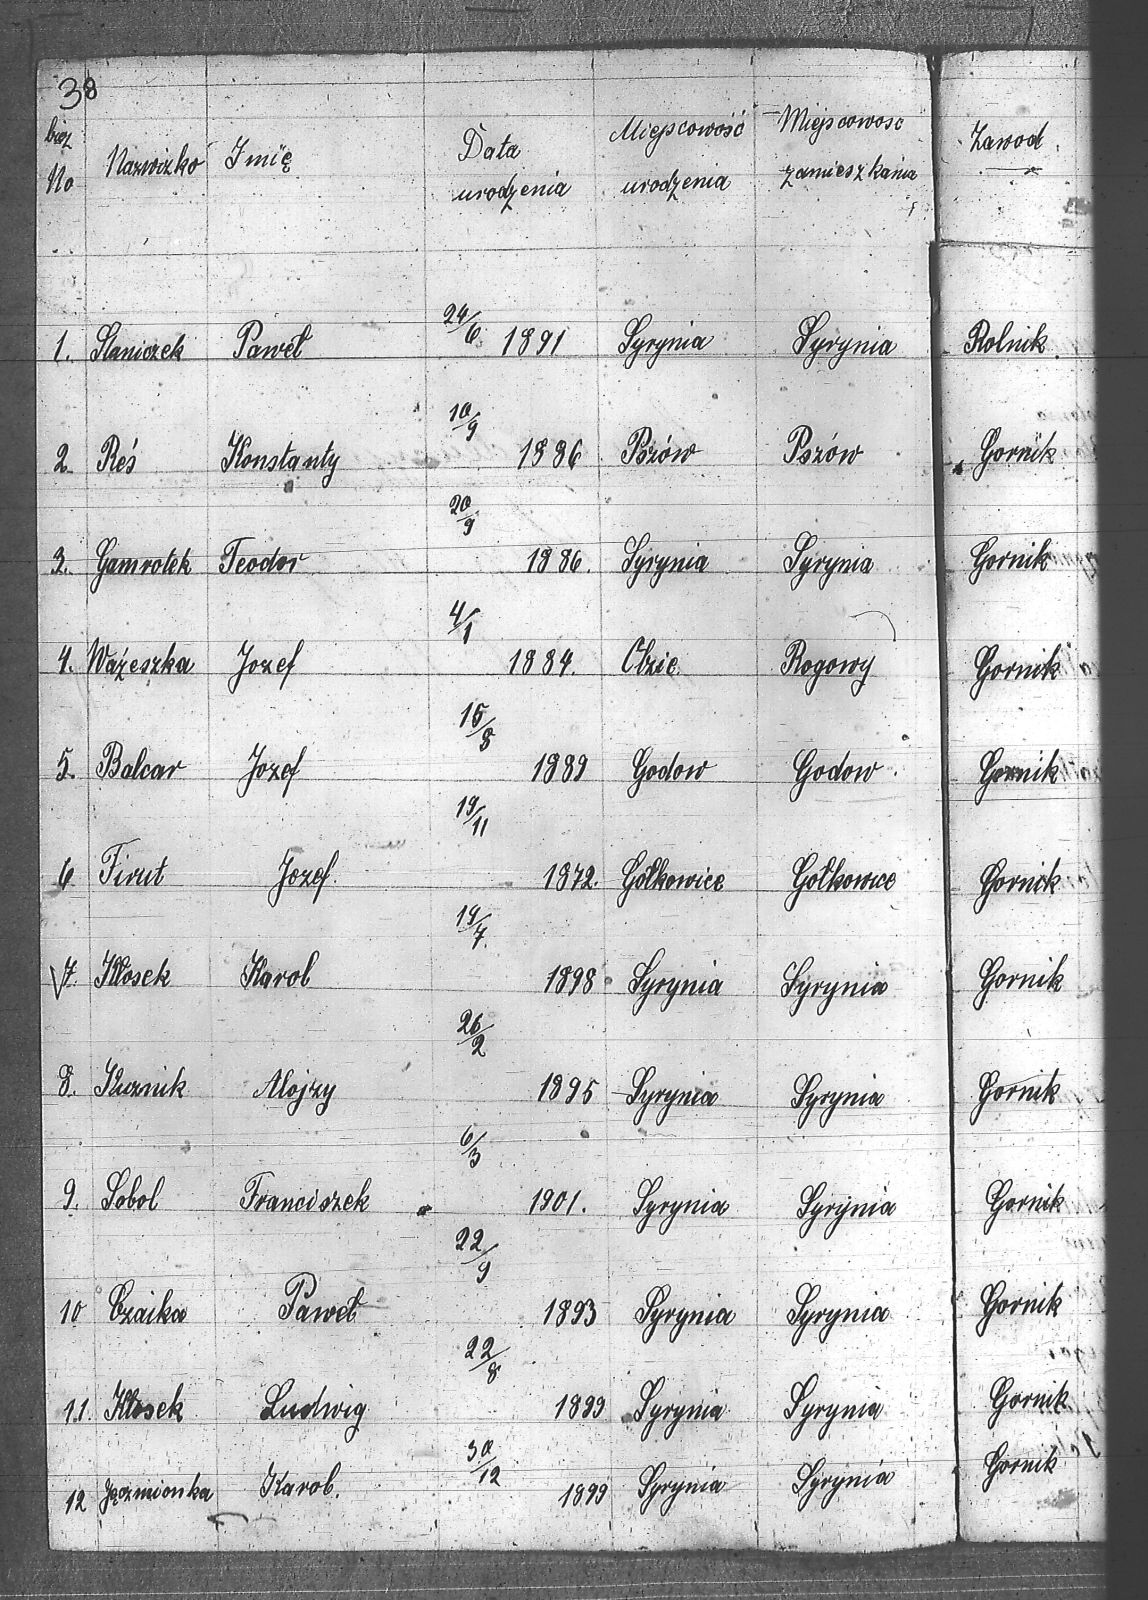 38
bież No Nazwizko Imię Data urodzenia Miejscowość urodzenia Miejscowosc zamieszkania Zawod
1. Staniczek Paweł 24/6 1891 Syrynia Syrynia Rolnik
2. Reś Konstanty 10/9 1886 Pszów Pszów Gornik
3. Gamrotek Teodor 20/9 1886. Syrynia Syrynia Gornik
4. Ważeszka Jozef 4/1 1884. Rogowy Gornik
5. Balcar Jozef 15/8 1889 Godow Godow Gornik
6 Firut Jozef. 19/11 1872. Gołkowice Gołkowice Gornik
7. Kłosek Karol 19/7. 1898 Syrynia Syrynia Gornik
8. Kuznik Alojzy 26/2 1895 Syrynia Syrynia Gornik
9. Sobol Franciszek 6/3 1901. Syrynia Syrynia Gornik
10 Czaika Paweł 22/9 1893 Syrynia Syrynia Gornik
11. Kłosek Ludwig 22/8 1899 Syrynia Syrynia Gornik
12 Jęczmionka Karol. 30/12 1899 Syrynia Syrynia Gornik